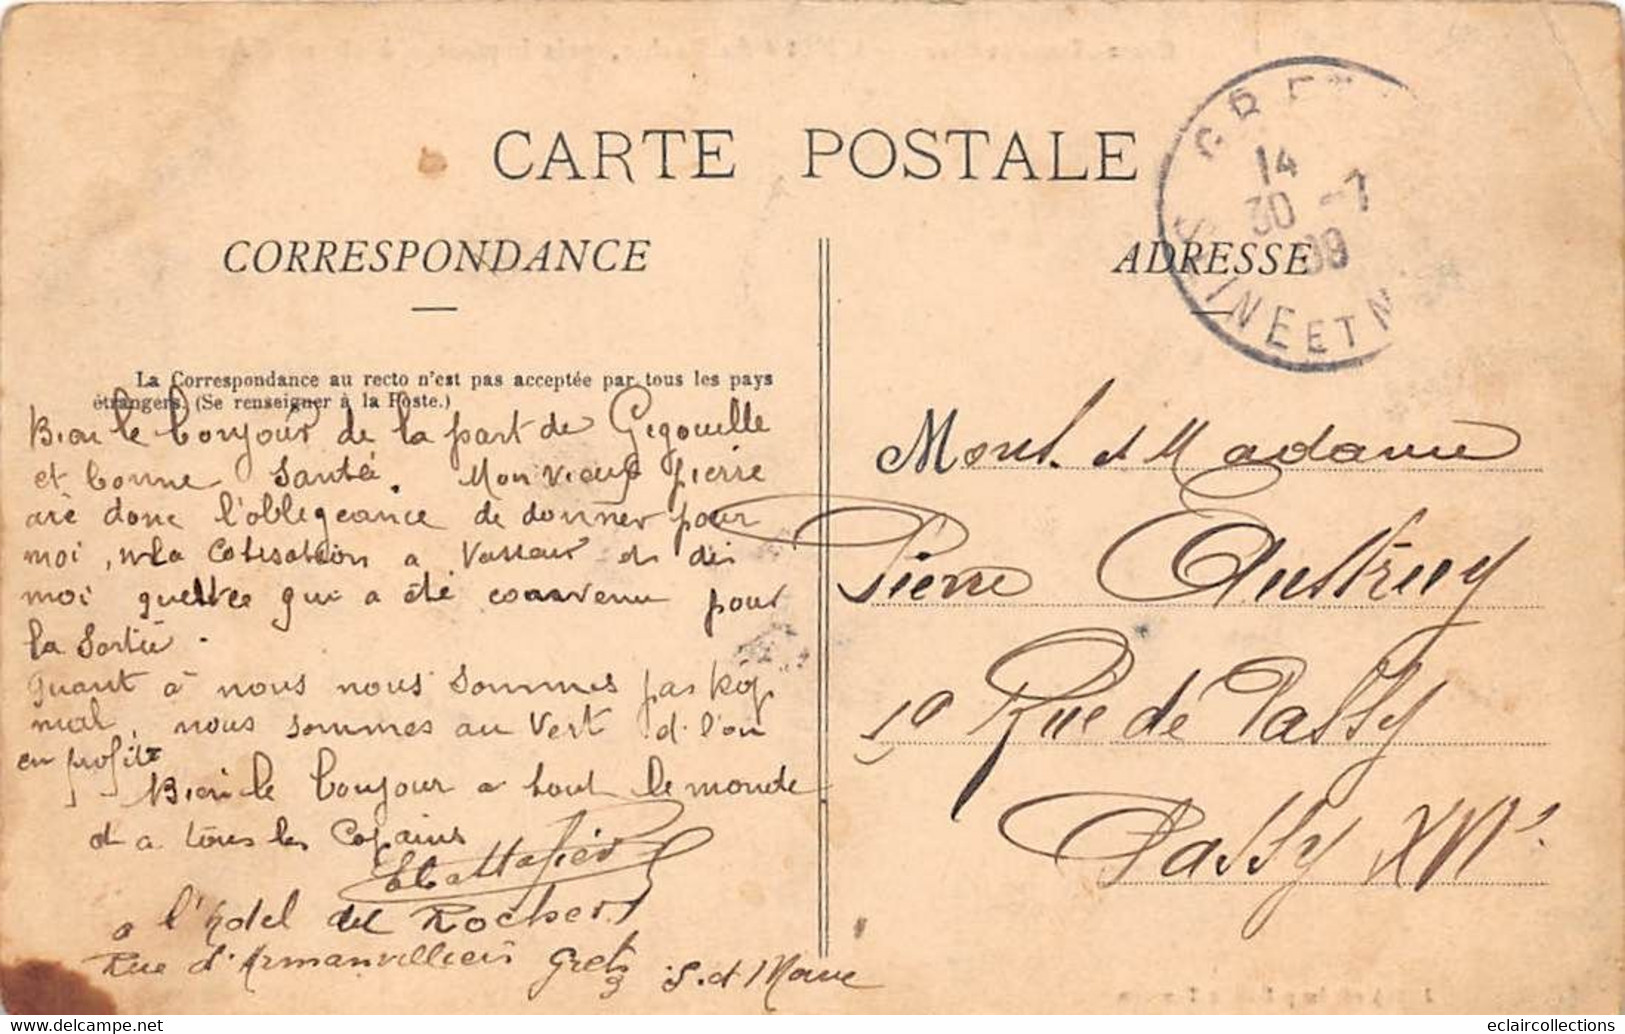 CARTE POSTALE
CORRESPONDANCE
ADRESSE
GRETZ
14
30 -7
09
SEINE ET M
La Correspondance au recto n'est pas acceptée par tous les pays
étrangers. (Se renseigner à la Poste.)
Bien le bonjour de la part de Gigouille
et bonne Santé. Mon vieux pierre
aie donc l'oblegeance de donner pour
moi, la Cotisation a Vasseur et dis
moi qui a été convenu pour
la Sortie.
Quant à nous nous Sommes pas
mal, nous sommes au Vert et l'on
en profite
Bien le bonjour a tout le monde
et a tous les Copains
a l'hotel du Rocher
Rue d'Armanvilliers Gretz S. et Marne
Mons. et Madame
Pierre Austruy
10 Rue de Passy
Passy XVIe
eclaircollections
© delcampe.net